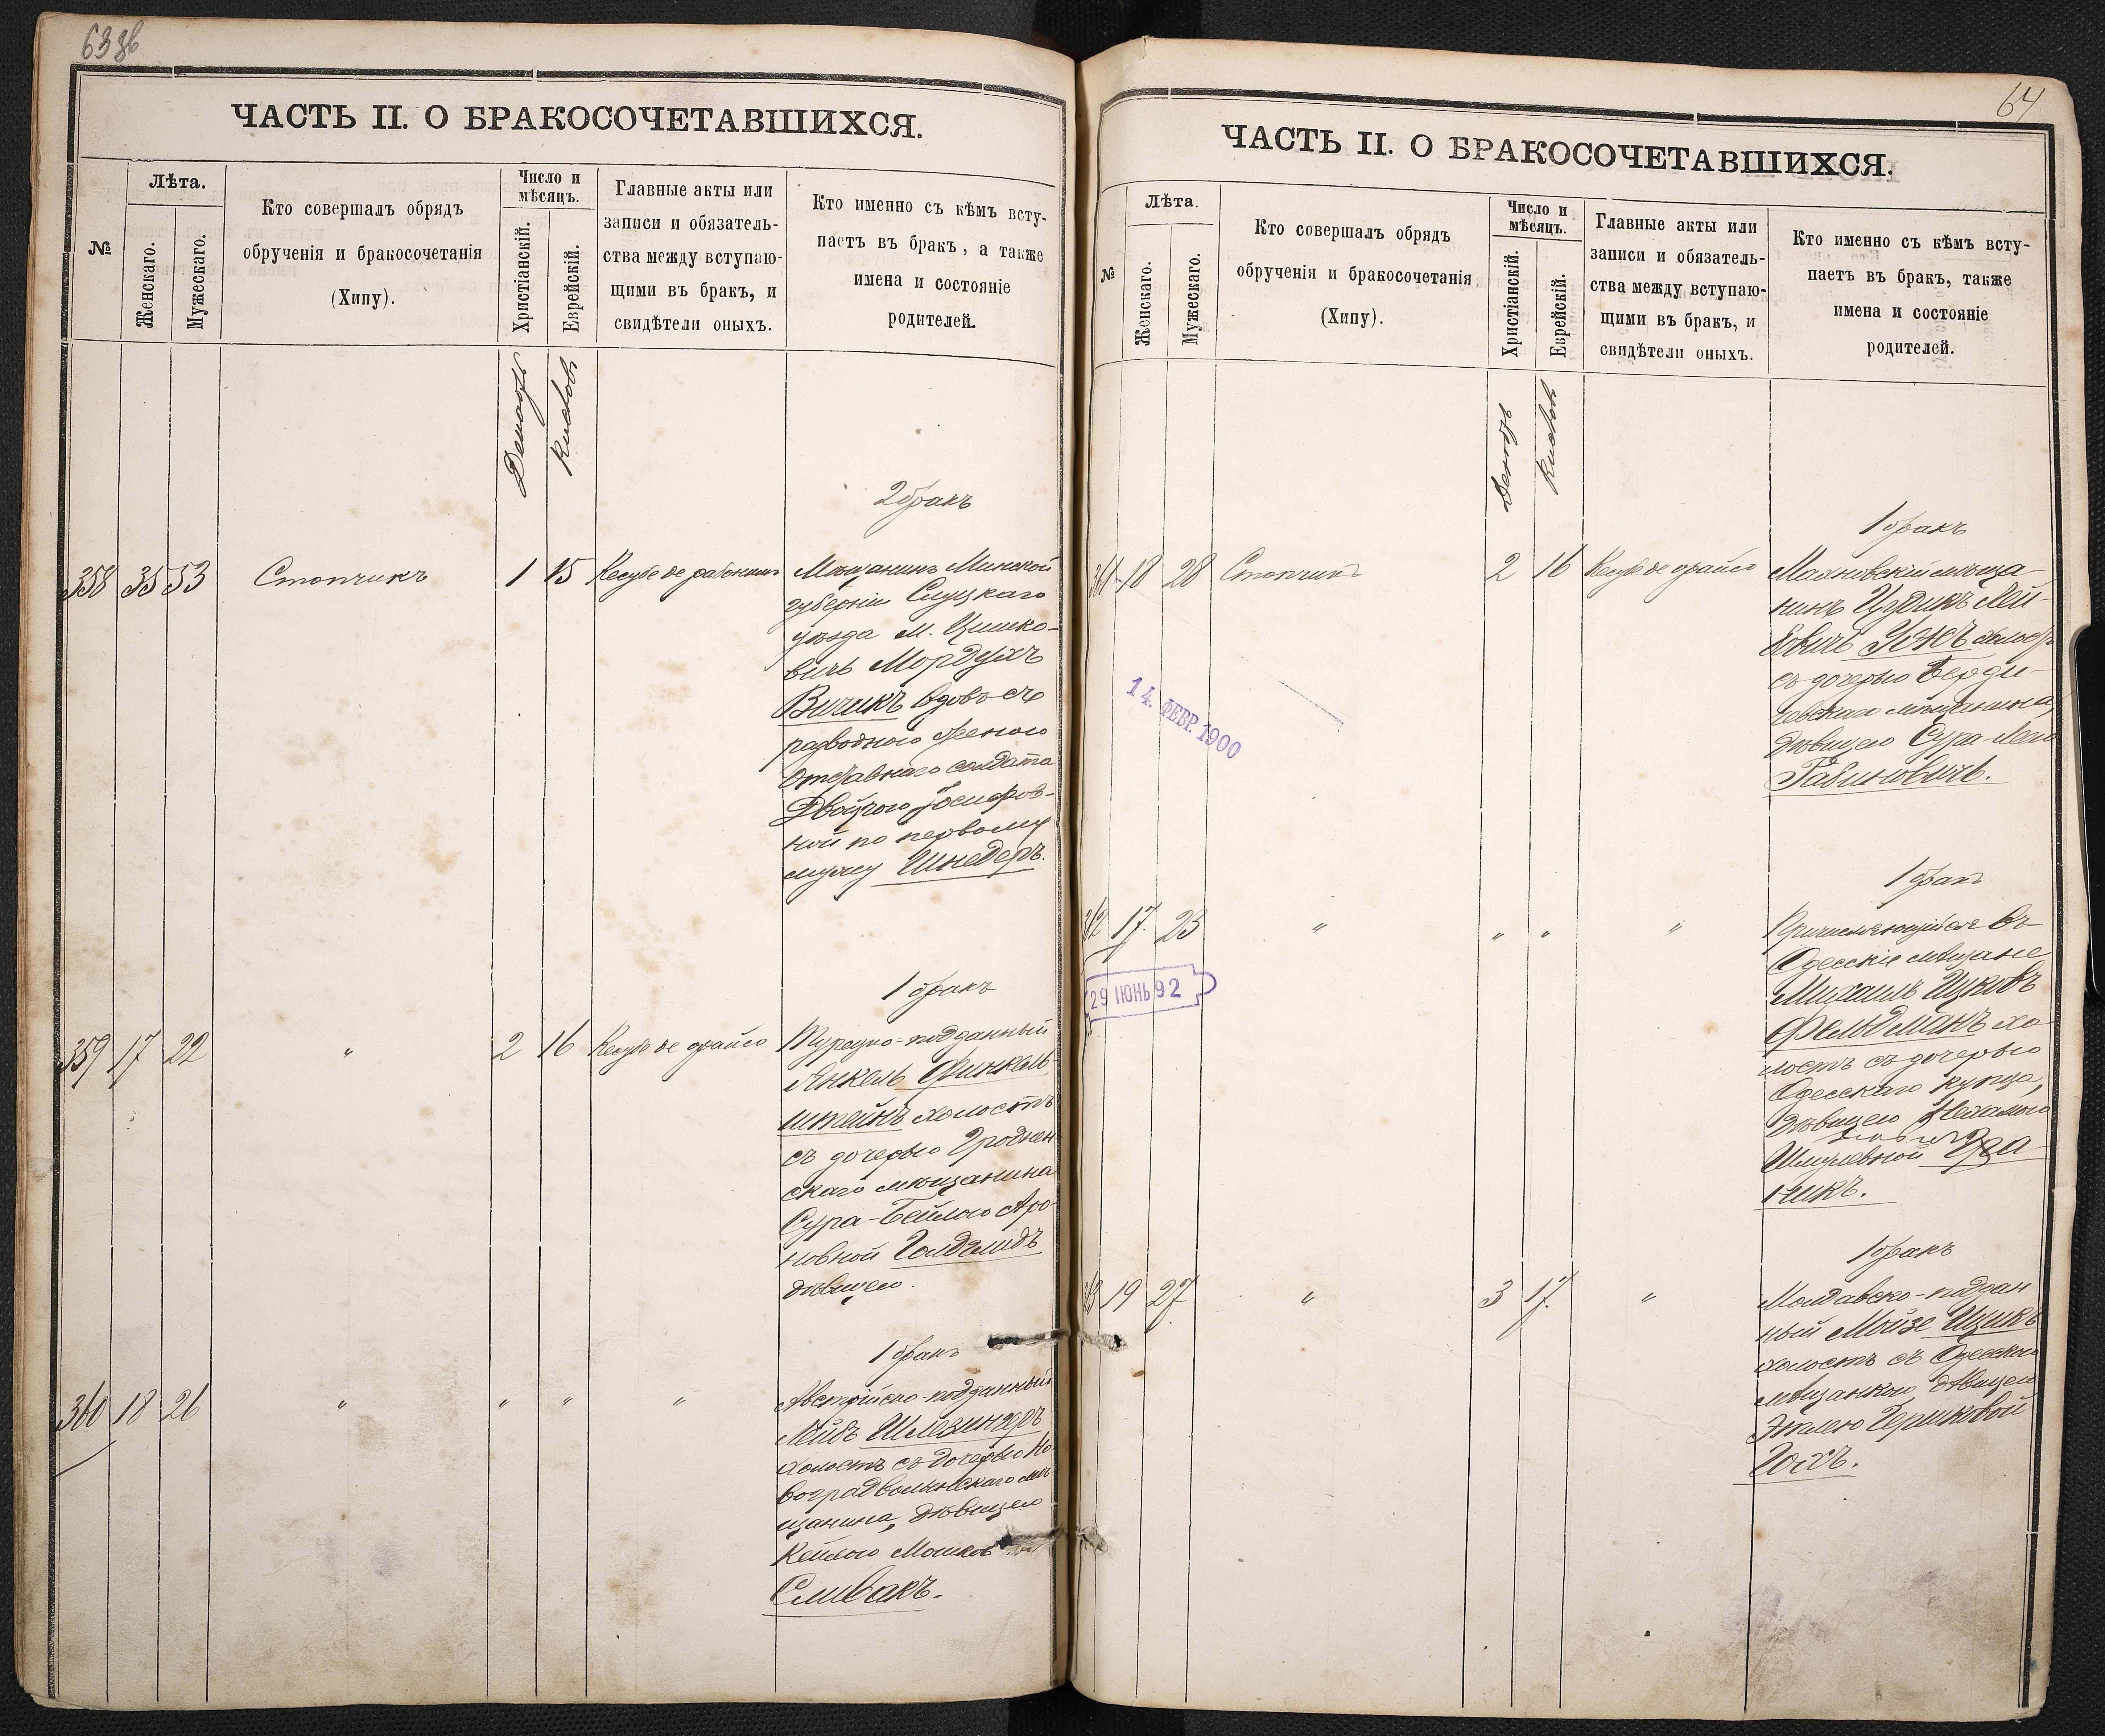 63 зв
ЧАСТЬ II. О БРАКОСОЧЕТАВШИХСЯ.
№
Лѣта.
Женскаго.
Мужескаго.
Кто совершалъ обрядъ
обрученія и бракосочетанія
(Хипу).
Число и
мѣсяцъ.
Христіанскій.
Еврейскій.
Главные акты или
записи и обязатель-
ства между вступаю-
щими въ бракъ, и
свидѣтели оныхъ.
Кто именно съ кѣмъ всту-
паетъ въ бракъ, а также
имена и состояніе
родителей.
Декабрь
Кислевъ
2 бракъ
358 35 53 Стопчикъ 1 15 Кесубе де рабонимъ
Мѣщанинъ Минской
губерніи Слуцкаго
уѣзда м. Цишко-
вичъ Мордухъ
Вичикъ вдовъ съ
разводною женою
отставнаго солдата
Двойрою Іосифов-
ной по первому
мужу Шнедеръ.
1 бракъ
359 17 22 " 2 16 Кесубе де орайсо
Турецко-подданный
Янкель Финкель-
штейнъ холостъ
съ дочерью Гроднен
скаго мѣщанина
Сура-Бейлою Аро-
новной Голдшмидъ
дѣвицею.
1 бракъ
360 18 26 " " " "
Австрійско-подданный
Лейбъ Шлезингеръ
холостъ съ дочерью Но-
воградволынскаго мѣ-
щанина, дѣвицею
Кейлою Мошков
Спивакъ.
64
ЧАСТЬ II. О БРАКОСОЧЕТАВШИХСЯ.
№
Лѣта.
Женскаго.
Мужескаго.
Кто совершалъ обрядъ
обрученія и бракосочетанія
(Хипу).
Число и
мѣсяцъ.
Христіанскій.
Еврейскій.
Главные акты или
записи и обязатель-
ства между вступаю-
щими въ бракъ, и
свидѣтели оныхъ.
Кто именно съ кѣмъ всту-
паетъ въ бракъ, также
имена и состояніе
родителей.
Декабрь
Кислевъ
1 бракъ
361 18 28 Стопчикъ 2 16 Кесубе де орайсо
Маяновскій мѣща-
нинъ Цудикъ Лей-
бовичъ Ужъ холостъ
съ дочерью Берди-
чевскаго мѣщанина,
дѣвицею Сура-Леею
Рабиновичъ.
14. ФЕВР. 1900
1 бракъ
362 17 23 " " " "
Причисляющійся въ
Одесскіе мѣщане
Михаилъ Ицковъ
Фельдманъ хо-
лостъ съ дочерью
Одесскаго купца,
дѣвицею Нехамою
Шмулевной
никъ.
29 ІЮНЬ 92
1 бракъ
363 19 27 " 3 17 "
Молдавско-поддан
ный Мойзе Ицикъ
холостъ съ Одесскою
мѣщанкою, дѣвицею
Этлею Гершковой
Гохъ.